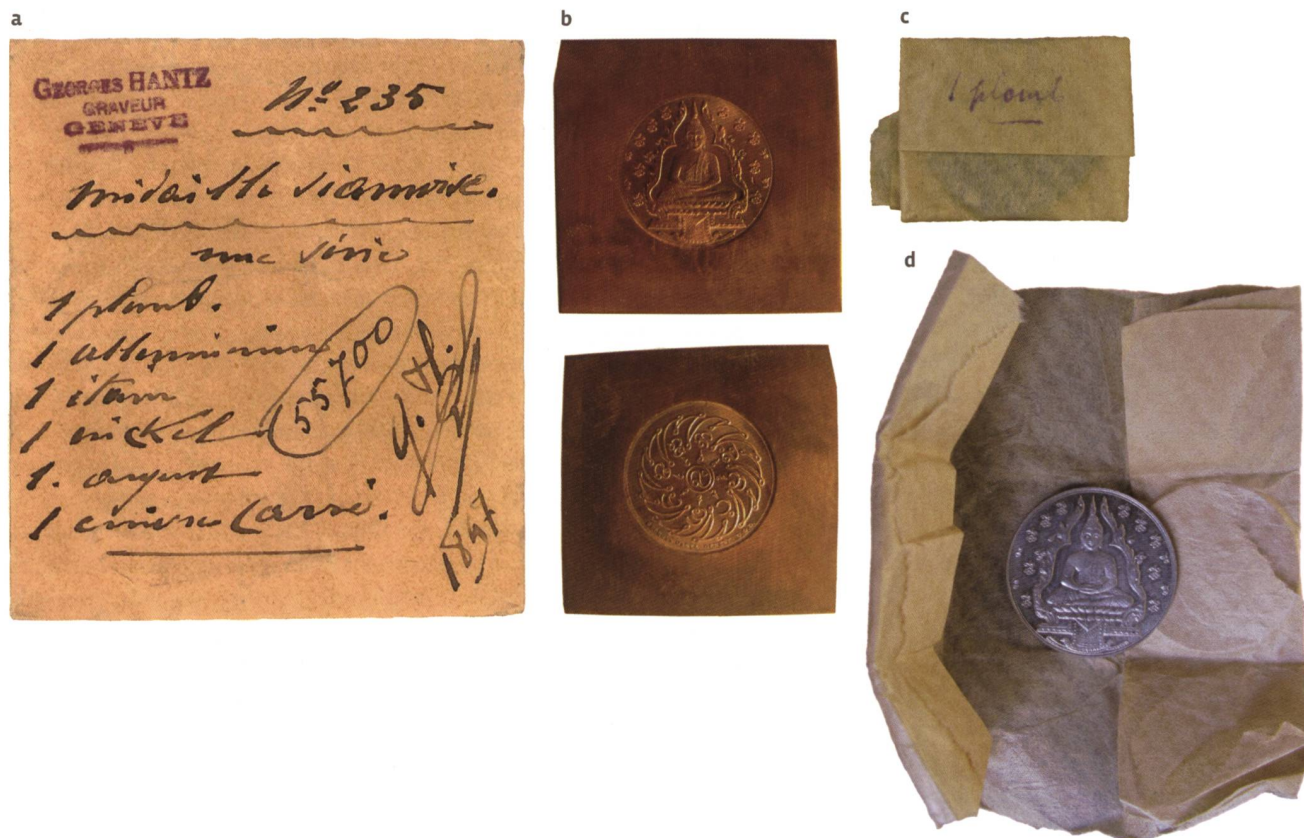 a
GEORGES HANTZ
GRAVEUR
GENEVE
No 235
médaille siamoise.
une série
1 plomb.
1 alleminium
1 étain
1 nickel
1. argent
1 cuivre carré.
55700
G. H.
1897
b
c
1 plomb
d